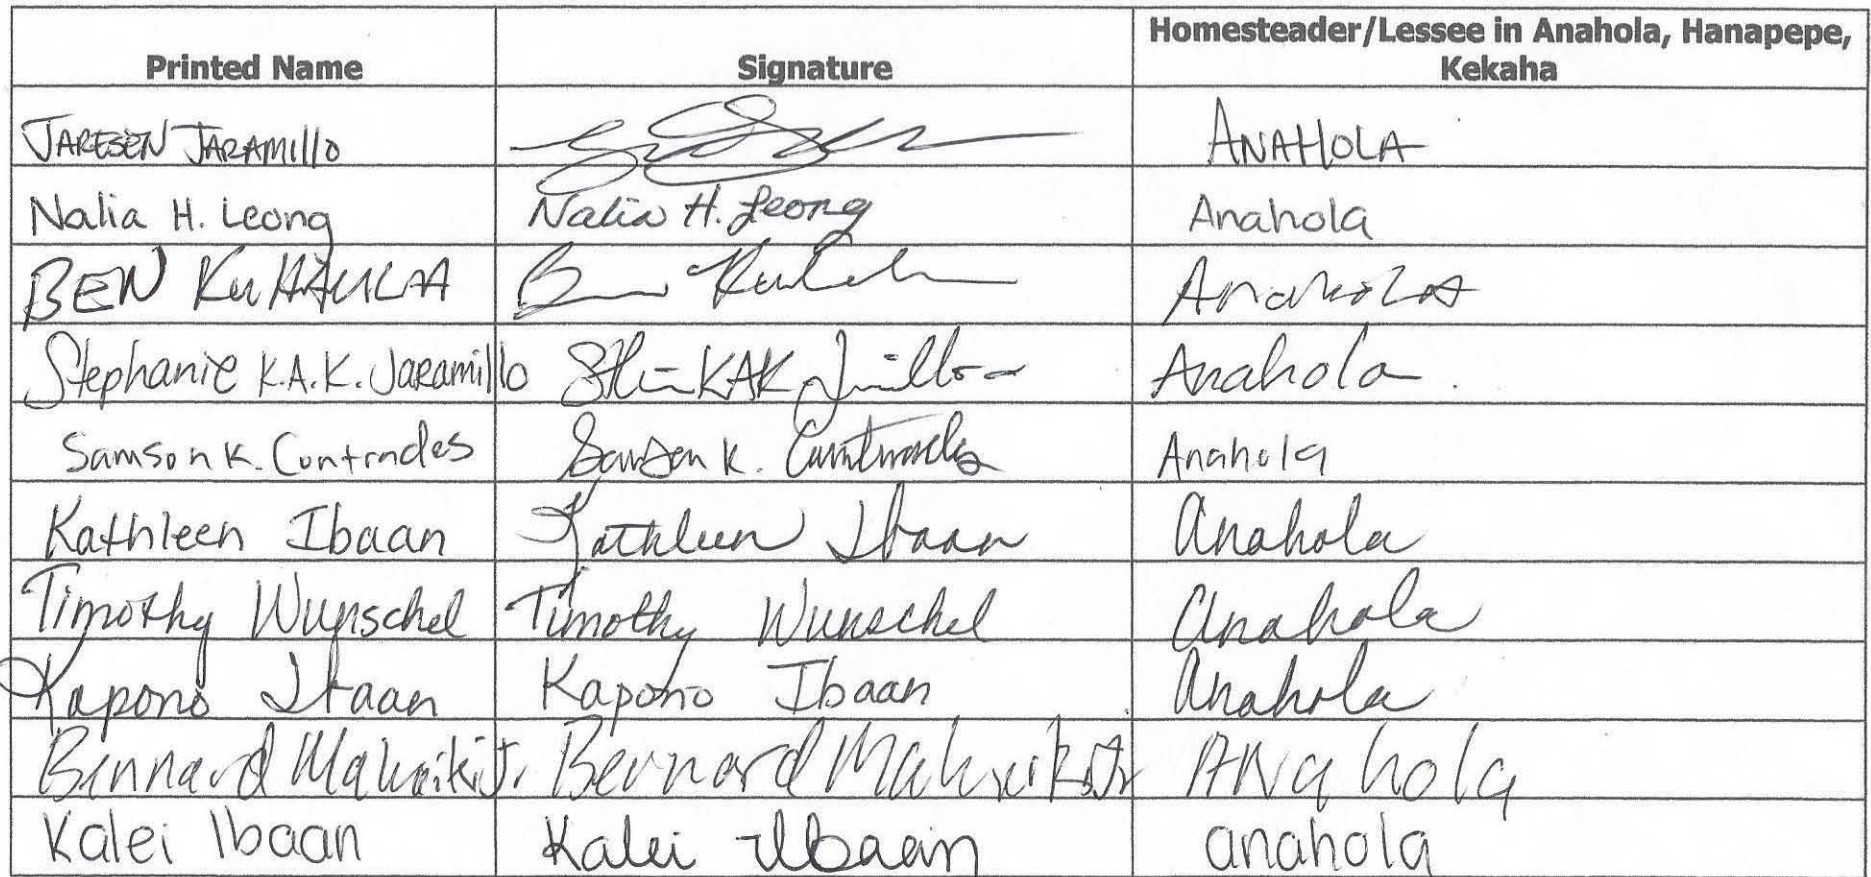 Printed Name Signature Homesteader/Lessee in Anahola, Hanapepe,
Kekaha
JARESEN JARAMILLO ANAHOLA
Nalia H. Leong Nalia H. Leong Anahola
BEN KUHAULUA Ben Anahola
Stephanie K.A.K. Jaramillo KAK Anahola.
Samson K. Contrades Samson K. Contrades Anahola
Kathleen Ibaan Kathleen Ibaan Anahola
Timothy Wunschel Timothy Wunschel Anahola
Kapono Ibaan Kapono Ibaan Anahola
Bernard Jr. Bernard ANahola
Kalei Ibaan Kalei Ibaan anahola